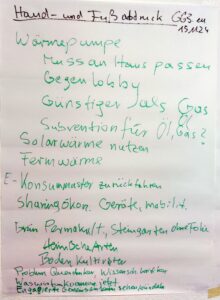 Hand- und Fußabdruck GGS.eu
15.11.24
Wärmepumpe
Muss an Haus passen
Gegenlobby
Günstiger als Gas
Subvention für Öl, Gas?
Solarwärme nutzen
Fernwärme
E- Konsummuster zurückfahren
Sharingökon. Geräte, mobilit.
Permakult, Steingarten ohne Folie
Heimische Arten
Boden kultivieren
Problem Querdenker, Wissensch.
Was wir tun können jetzt
Engagierte